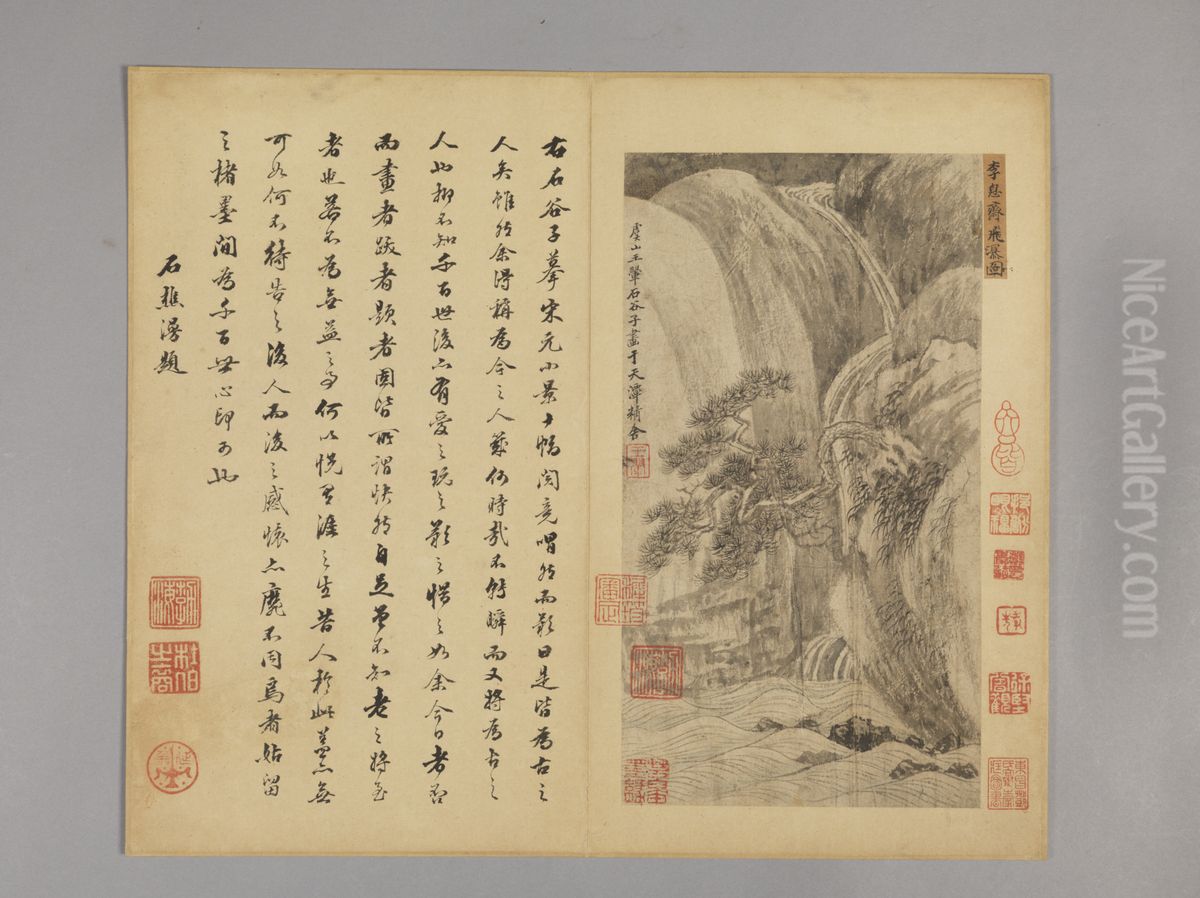 李息齋飛瀑圖
虞山王翬石谷子畫于天精舍
右石谷子摹宋元小景十幅閱竟喟然而歎曰是皆為古之
人矣雖然余得稱為今之人幾何時哉不轉瞬而又將為古之
人也抑不知千百世後亦有愛之玩之歎之惜之如余今日者否
而畫者跋者題者固皆所謂快然自足曾不知老之將至
者也若不為無益之事何以悅有涯之生昔人於此蓋亦無
可如何不待告之後人而後之感懷亦靡不同焉者姑留
之楮墨間為千百世心印可也
石樵漫題
NiceArtGallery.com